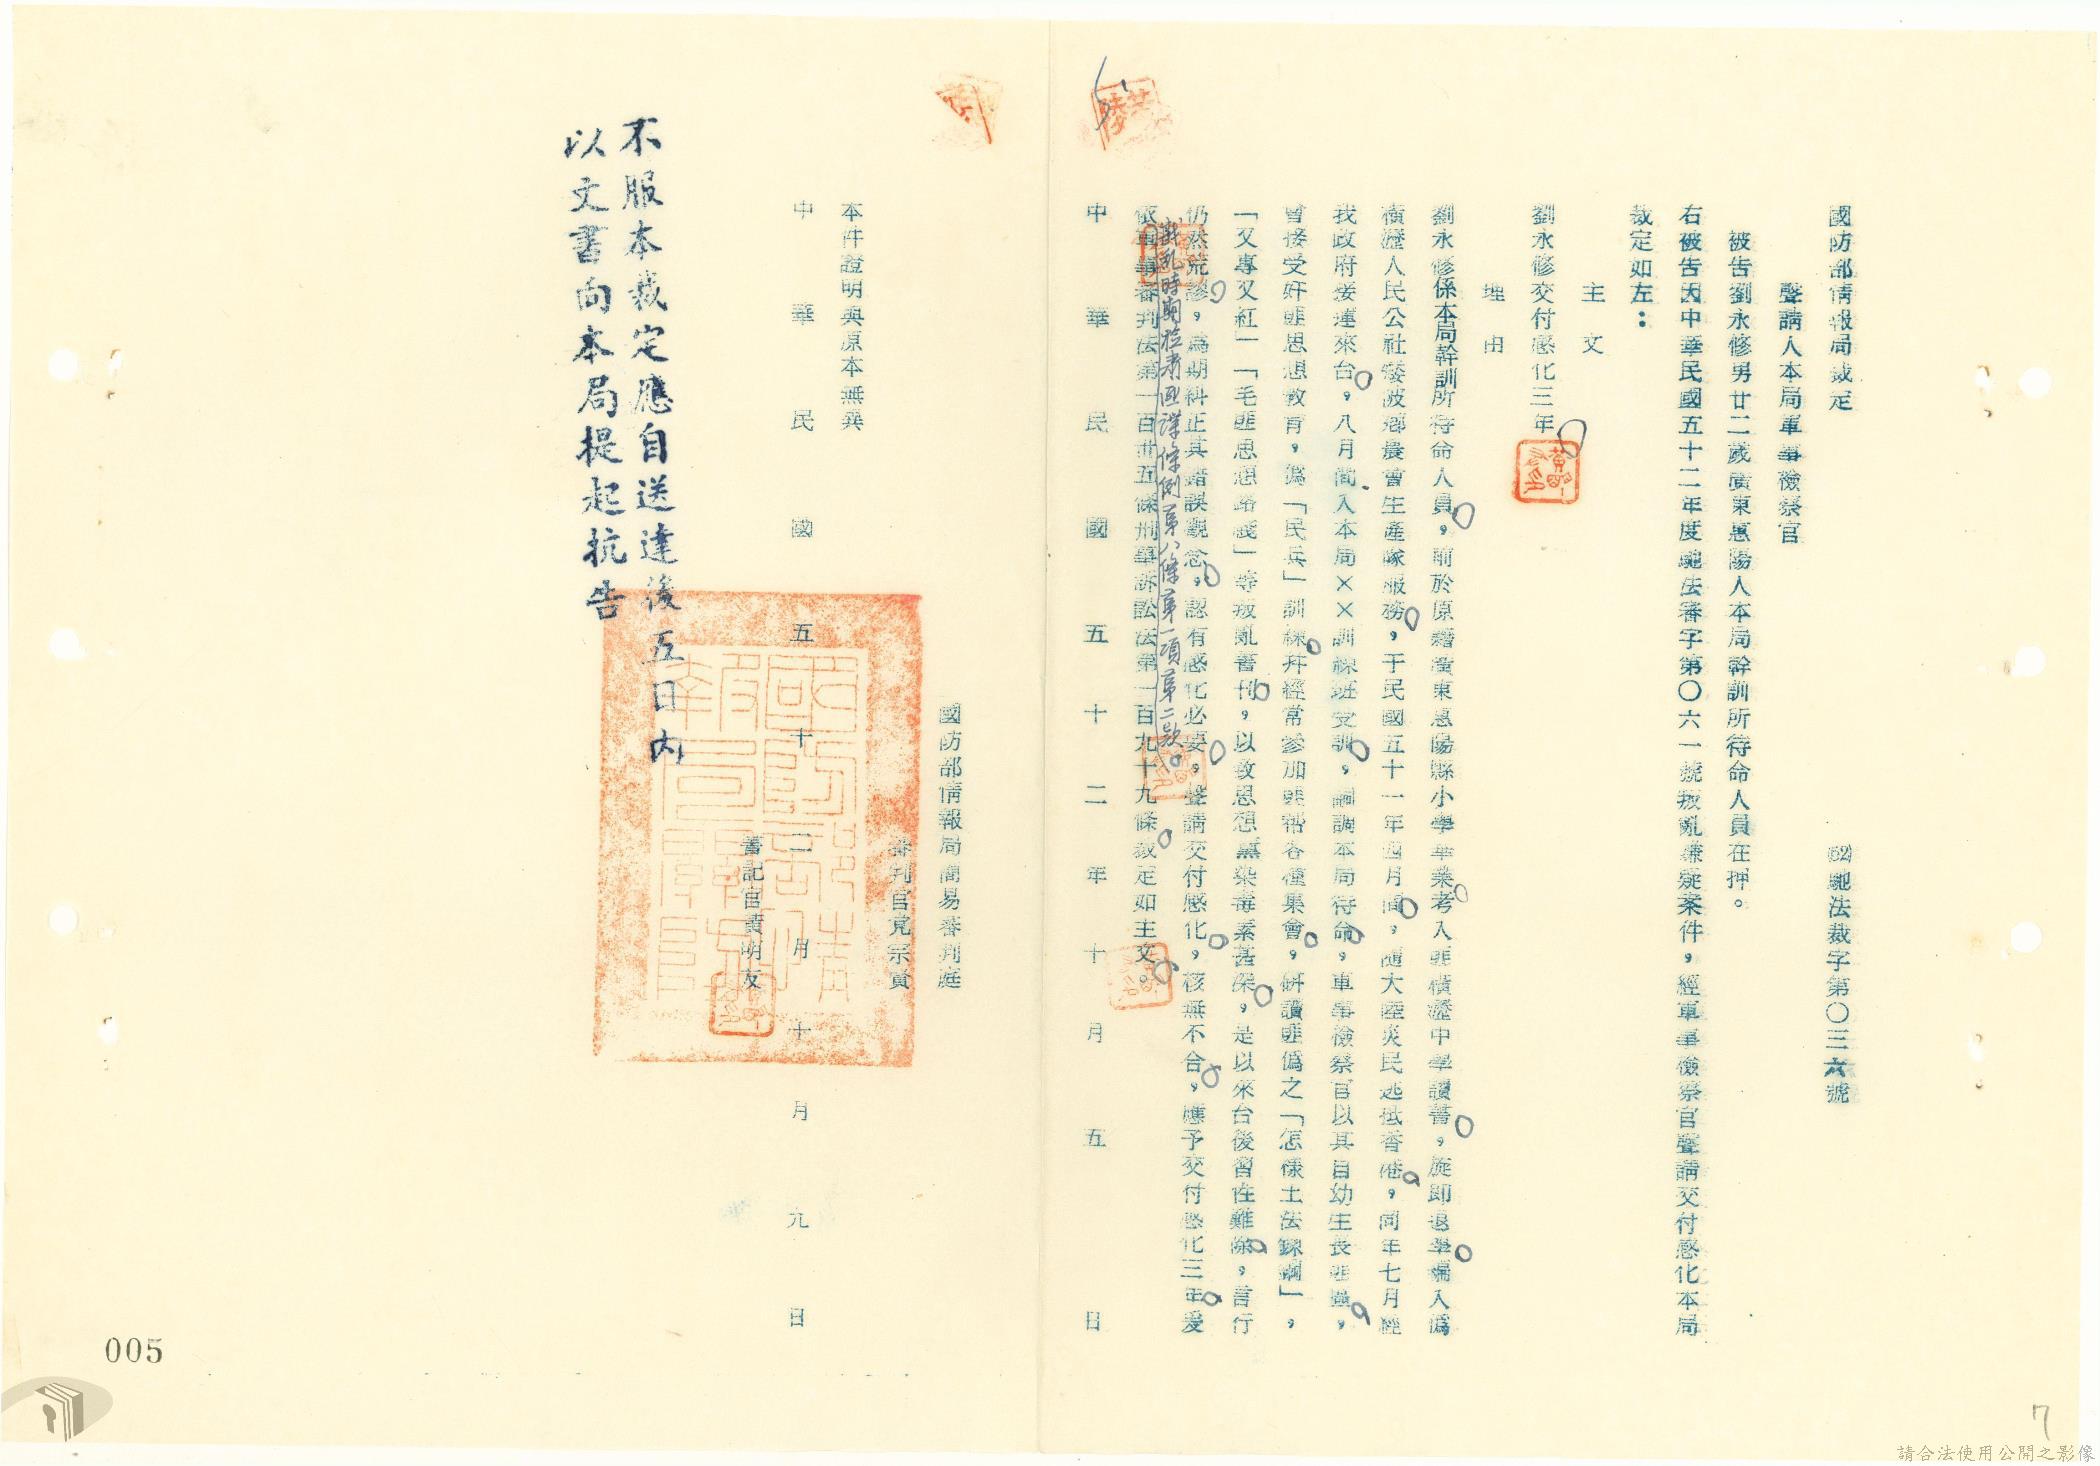 國防部情報局裁定
(52)馳法裁字第〇三六號
聲請人本局軍事檢察官
被告劉永修男廿二歲廣東惠陽人本局幹訓所待命人員在押。
右被告因中華民國五十二年度馳法審字第〇六一號叛亂嫌疑案件，經軍事檢察官聲請交付感化本局
裁定如左：
主文
劉永修交付感化三年。
理由
劉永修係本局幹訓所待命人員，前於原籍廣東惠陽縣小學畢業考入匪橫瀝中學讀書，旋即退學編入偽
橫瀝人民公社矮波鄉農會生產隊服務，于民國五十一年四月間，隨大陸災民逃抵香港，同年七月經
我政府接運來台，八月間入本局××訓練班受訓，調本局待命，軍事檢察官以其自幼生長匪區，
曾接受奸匪思想教育，偽「民兵」訓練幷經常參加匪幫各種集會，研讀匪偽之「怎樣土法鍊鋼」，
「又專又紅」「毛匪思想路綫」等叛亂書刊，以致思想薰染毒素甚深，是以來台後習性難除，言行
仍然荒謬，為期糾正其錯誤觀念，認有感化必要，聲請交付感化，核無不合，應予交付感化三年爰
戡亂時期檢肅匪諜條例第八條第一項第二款。
依軍事審判法第一百卅五條刑事訴訟法第一百九十九條裁定如主文。
中華民國五十二年十月五日
國防部情報局簡易審判庭
審判官
本件證明與原本無異
中華民國五十二月十月九日
書記官黃明友
不服本裁定應自送達後五日內
以文書向本局提起抗告
005
7
請合法使用公開之影像